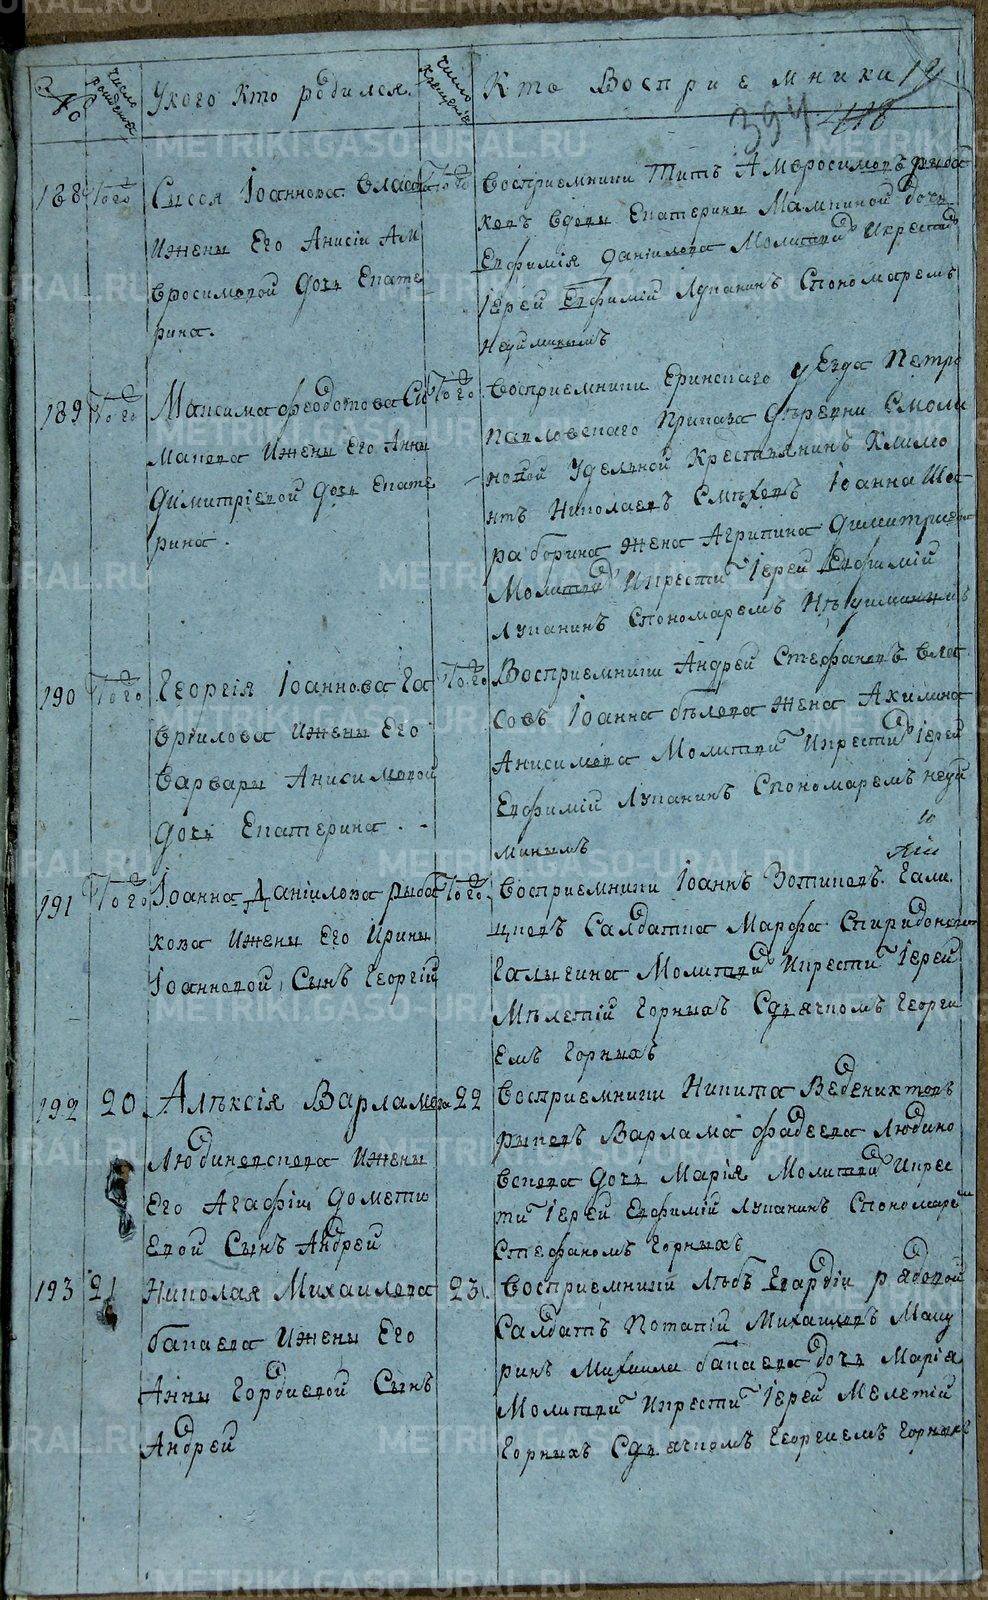 № число рождения У кого кто родился. число крещения Кто восприемники 12
394 118
188 того Сысоя Іоаннова Власова того
и жены Его Анисіи Ам
вросимовой дочь Екате
рина.
восприемники Титъ Амвросимовъ рыба
ковъ вдовы Екатерины Мамкиной дочь
Евфимія Даніилова Молитв. и крестилъ
Іерей Евфимій Лупанинъ с пономаремъ
Неуиминымъ
189 того Максима Феодотова Си того
макова и жены Его Анны
Димитріевой дочь Екате
рина.
восприемники Еринскаго уезда Петро
павловскаго приказа деревни Смоли
новой удельной крестьянинъ Климе
нтъ Николаевъ Смѣховъ Іоанна Шас
ра борина жена Агрипина Димитриева
Молитв. и крести Іерей Евфимій
Лупанинъ с пономаремъ Неуиминымъ
190 того Георгія Іоаннова Га того
врилова и жены Его
Варвары Анисимовой
дочь Екатерина.
Восприемники Андрей Стефановъ Влас
совъ Іоанна бѣлова жена Акилина
Анисимова Молитв. и крести Іерей
Евфимій Лупанинъ с пономаремъ неуи
минымъ
191 того Іоанна Даніилова рыба того
кова и жены Его Ирины
Іоанновой сынъ Георгій
восприемники Іоаннъ Зотиковъ Гали
цковъ Салдатка Марфа Спиридонова
Галыгина Молитв. и крести Іерей
Мѣлетій Горныхъ с дьячкомъ Георги
емъ Горныхъ
192 20 Алѣксія Варламова 22
Людиновскова и жены
Его Агафіи Домети
Евой сынъ Андрей
восприемники Никита Веденихтовъ
рыковъ Варлама Фадеева Людино
вскова дочь Марія Молитв. и крес
ти Іерей Евфимій Лупанинъ с пономаре
Стефаномъ Горныхъ
193 21 Николая Михаилова 23
бакаева и жены Его
Анны Гордиевой сынъ
Андрей
восприемники Лѣбъ Гвардіи рядовой
Салдатъ Потапій Михаиловъ Мацу
ринъ Михаила бакаева дочь Марія
Молитв. и крести Іерей Мелетій
Горныхъ с дьячкомъ Георгиемъ Горныхъ
METRIKI.GASO-URAL.RU